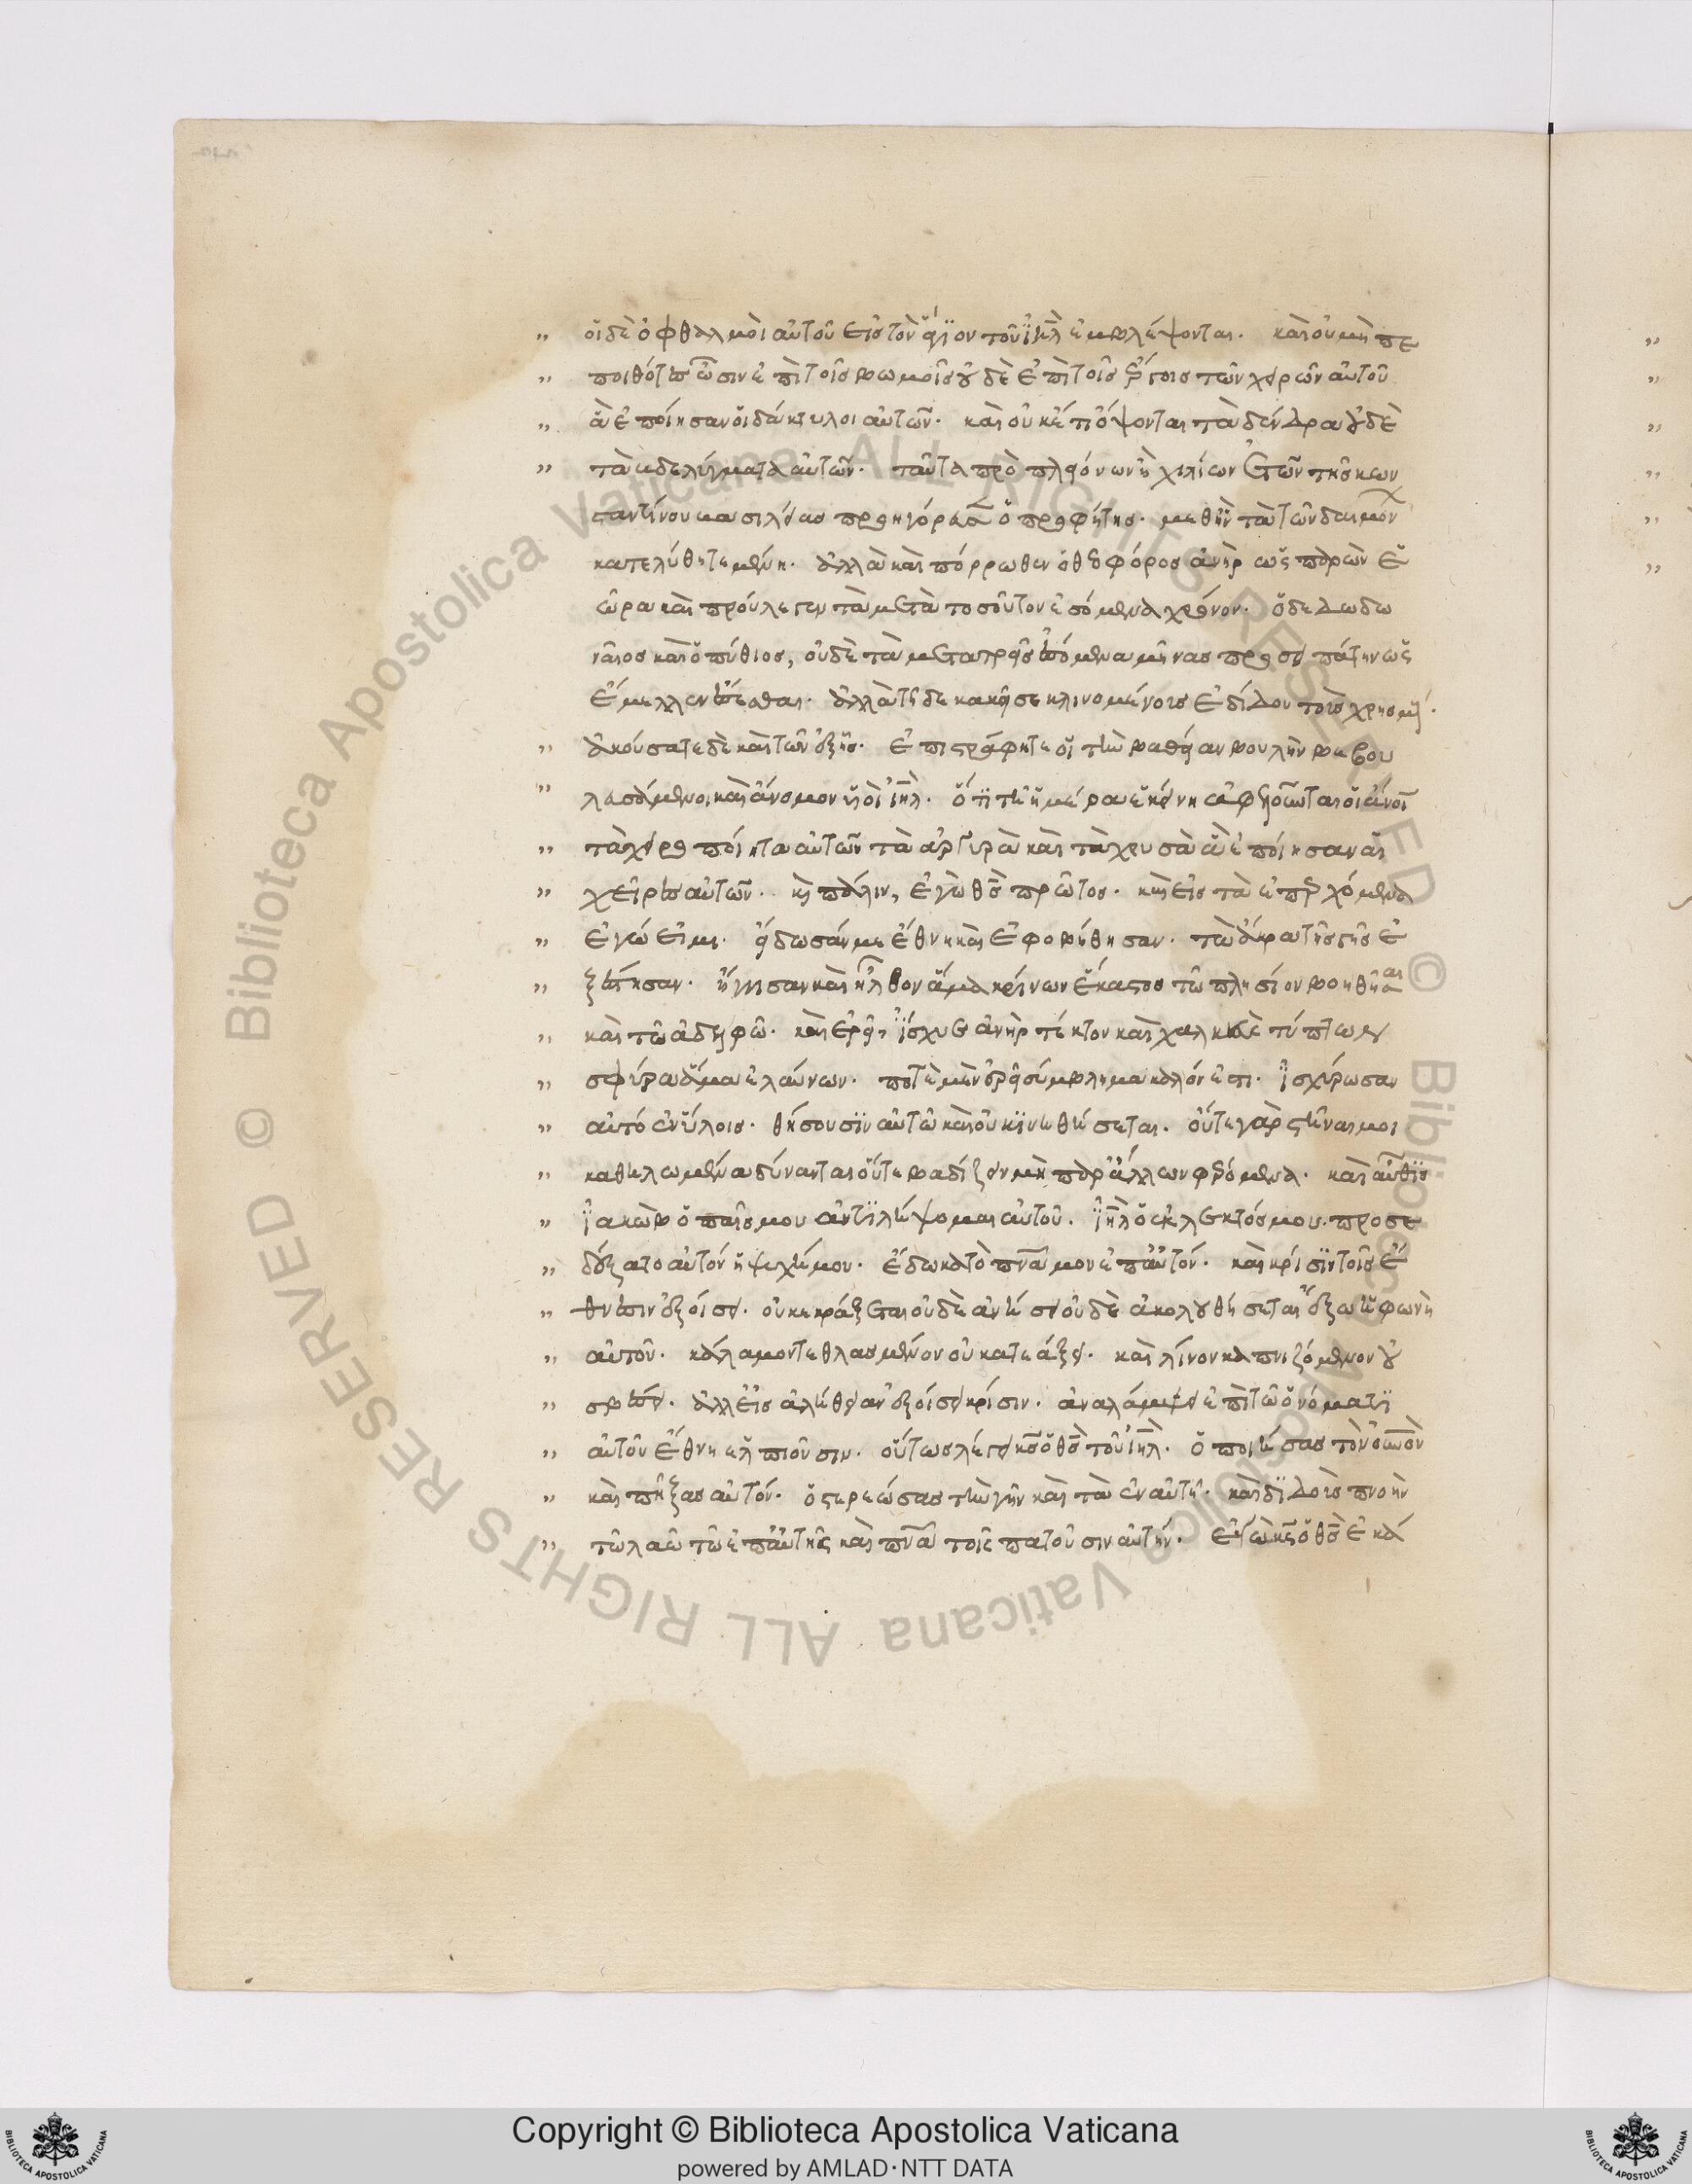 „ οἱ δὲ ὀφθαλμοὶ αὐτοῦ εἰς τὸν ἅγιον τοῦ ἰηλ ἐμβλέψονται. καὶ οὐ μὴ πε
„ ποιθότες ὦσιν ἐπὶ τοῖς βωμοῖς οὐδὲ ἐπὶ τοῖς ἔργοις τῶν χειρῶν αὐτοῦ
„ ἃ ἐποίησαν οἱ δάκτυλοι αὐτῶν. καὶ οὐκέτι ὄψονται τὰ δένδρα οὐδὲ
„ τὰ βδελύγματα αὐτῶν. ταῦτα πρὸ πλειόνων ἢ χιλίων ἐτῶν τῆς κων
σταντίνου βασιλείας προηγόρευσεν ὁ προφήτης. μεθ' ἣν τὰ τῶν δαιμόνων
κατελύθη τεμένη. ἀλλὰ καὶ πόρρωθεν ὁ θεοφόρος ἀνὴρ ὡς παρὼν ἑ
ώρα καὶ προύλεγεν τὰ μετὰ τοσοῦτον ἐσόμενα χρόνον. ὁ δὲ δωδω
ναῖος καὶ ὁ πύθιος, οὐδὲ τὰ μετὰ τρεῖς ἐσόμενα μῆνας προσειπάτην ὡς
ἔμελλεν ἔσεσθαι. ἀλλὰ τῇδε κακεῖσε κλινομένους ἐδίδου τοὺς χρησμούς.
„ ἀκούσατε δὲ καὶ τῶν ἑξῆς. ἐπιστράφητε οἱ τὴν βαθεῖαν βουλὴν βεβου
„ λευσάμενοι καὶ ἄνομον υἱοὶ ἰηλ. ὅτι τῇ ἡμέρα ἐκείνη ἀφελοῦνται οἱ ἄνοι
„ τὰ χειροποίητα αὐτῶν τὰ ἀργυρᾶ καὶ τὰ χρυσᾶ ἃ ἐποίησαν αἱ
„ χεῖρες αὐτῶν. καὶ πάλιν, ἐγὼ θς πρῶτος. καὶ εἰς τὰ ἐπερχόμενα
„ ἐγώ εἰμι. εἴδωσάν με ἔθνη καὶ ἐφοβήθησαν. τὰ ἄκρα τῆς γῆς ἐ
„ ξέστησαν. ἤγγισαν καὶ ἦλθον ἅμα κρίνων ἕκαστος τῷ πλησίον βοηθῆσαι
„ καὶ τῷ ἀδελφῷ. καὶ ἐρεῖ, ἴσχυσεν ἀνὴρ τέκτον καὶ χαλκεὺς τύπτων
„ σφύρα ἅμα ἐλαύνων. ποτὲ μὲν ἐρεῖ σύμβλημα καλόν ἐστι. ἰσχύρωσαν
„ αὐτὸ ἐν ἥλοις. θήσουσιν αὐτὸ καὶ οὐ κινηθήσεται. οὔτε γὰρ στῆναι μοι
„ καθηλωμένα δύνανται οὔτε βαδίζειν μὴ παρ' ἄλλων φερόμενα. καὶ αὖθις
„ ἰακὼβ ὁ παῖς μου ἀντιλήψομαι αὐτοῦ. ἰηλ ὁ ἐκλεκτός μου. προσε
„ δέξατο αὐτὸν ἡ ψυχή μου. ἔδωκα τὸ πνα μου ἐπ' αὐτόν. καὶ κρίσιν τοῖς ἔ
„ θνεσιν ἐξοίσει. οὐ κεκράξεται οὐδὲ ἀνήσει οὐδὲ ἀκολουθήσεται ἔξω ἡ φωνὴ
„ αὐτοῦ. κάλαμον τεθλασμένον οὐ κατεάξει. καὶ λίνον καπνιζόμενον οὐ
„ σβέσει. ἀλλ' εἰς ἀλήθειαν ἐξοίσει κρίσιν. ἀναλάμψει ἐπὶ τῷ ὀνόματι
„ αὐτοῦ ἔθνη ἐλπιοῦσιν. οὕτως λέγει κς ὁ θς τοῦ ἰηλ. ὁ ποιήσας τὸν οὐνὸν
„ καὶ πήξας αὐτόν. ὁ στερεώσας τὴν γῆν καὶ τὰ ἐν αὐτῇ. καὶ διδοὺς πνοὴν
„ τῷ λαῷ τῷ ἐπ' αὐτῆς καὶ πνα τοῖς πατοῦσιν αὐτήν. ἐγὼ κς ὁ θς ἐκά